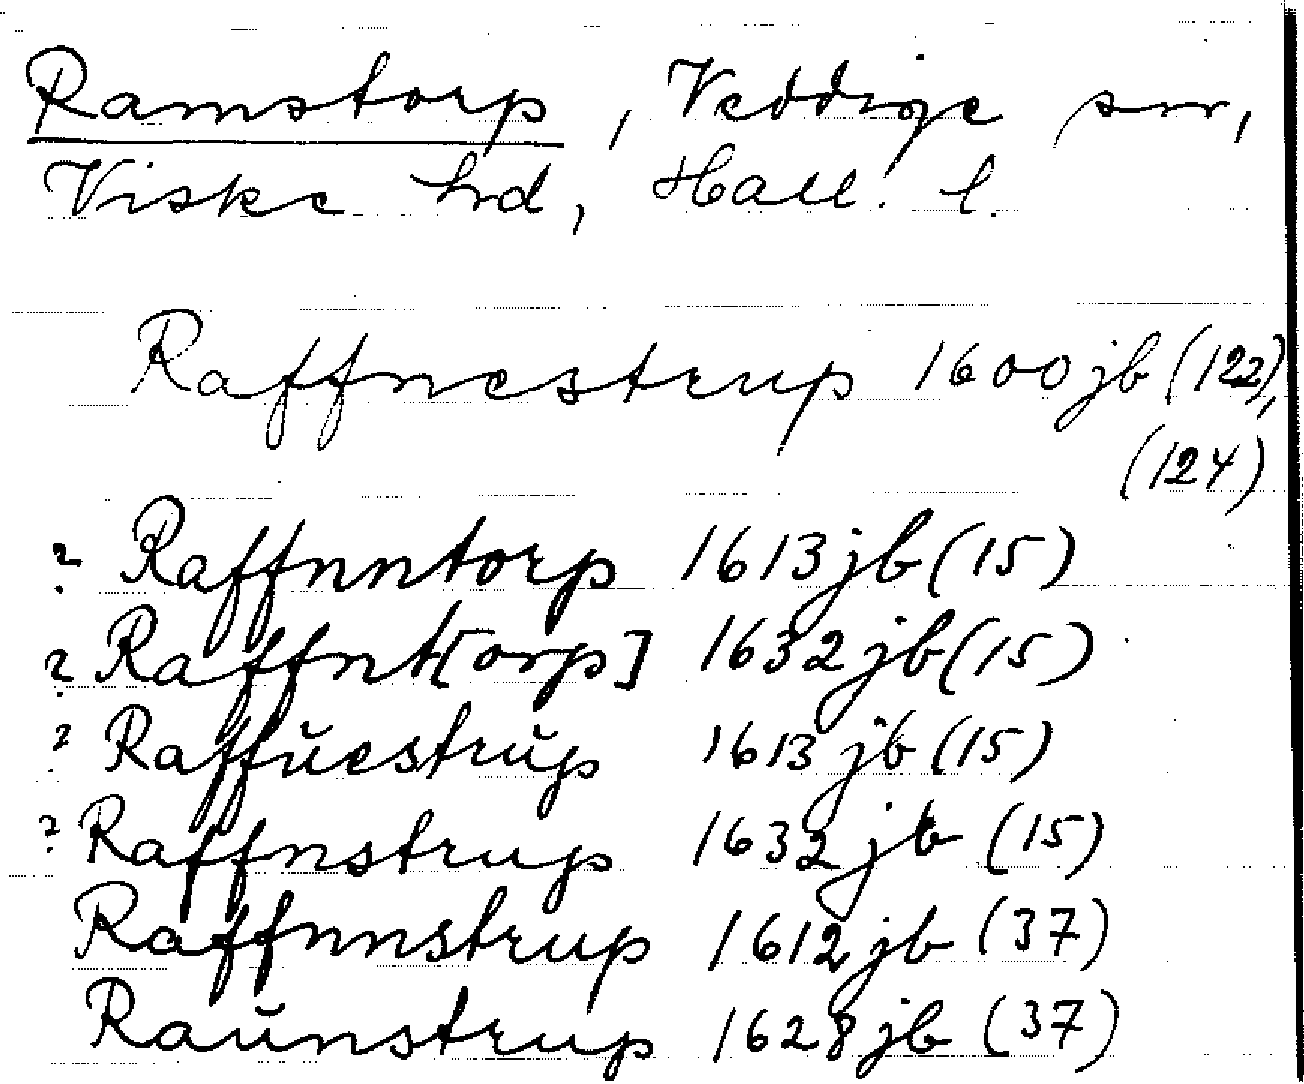 Ramstorp, Veddige sn,
Viske hd, Hall. l.
Raffnestrup 1600 jb (122),
(124)
? Raffnntorp 1613 jb (15)
? Raffnt[orp] 1632 jb (15)
? Raffŭestrŭp 1613 jb (15)
? Raffnstrup 1632 jb (15)
Raffnnstrup 1612 jb (37)
Raŭnstrup 1628 jb (37)